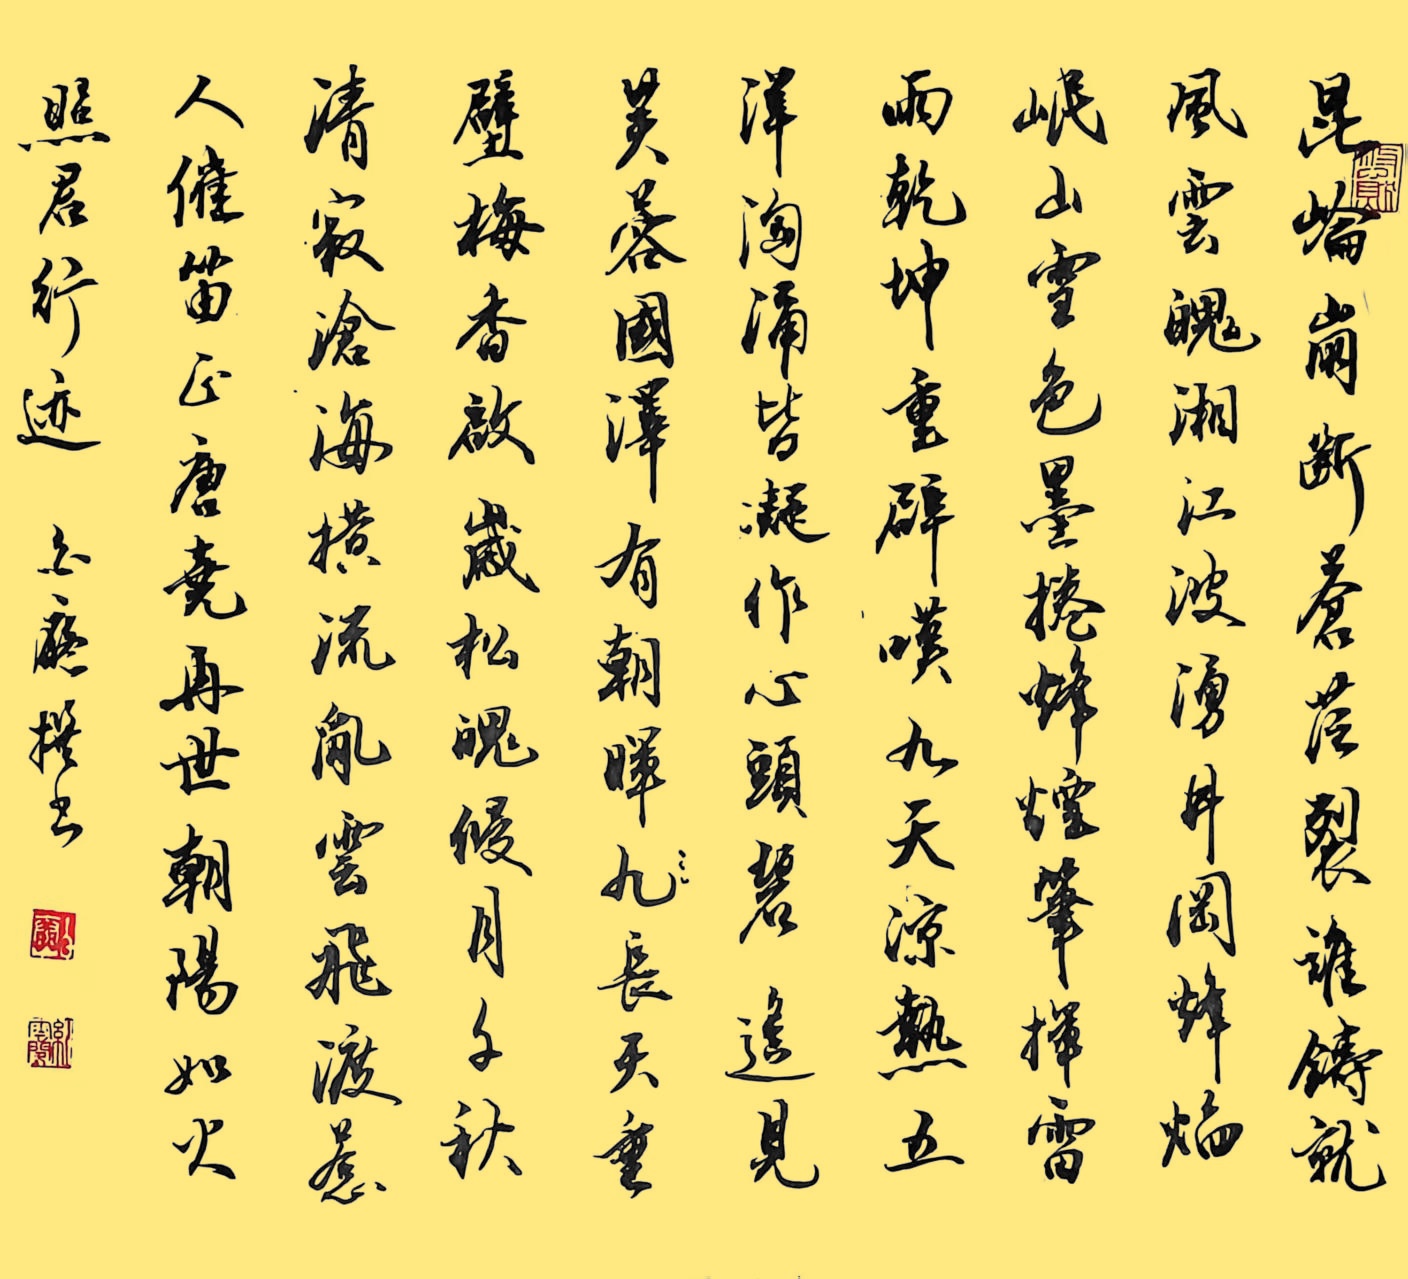 昆崘崩斷蒼茫裂誰鑄就
風雲魄湘江波湧井岡烽焰
岷山雪色墨捲烽煙筆揮雷
雨乾坤重辟嘆九天涼熱五
洋洶涌皆凝作心頭碧遙見
芙蓉國澤有朝暉九長天垂
壁梅香啟歲松魄侵月千秋
清寂滄海横流亂雲飛渡惹
人催笛正唐堯再世朝陽如火
照君行迹 廬撰书